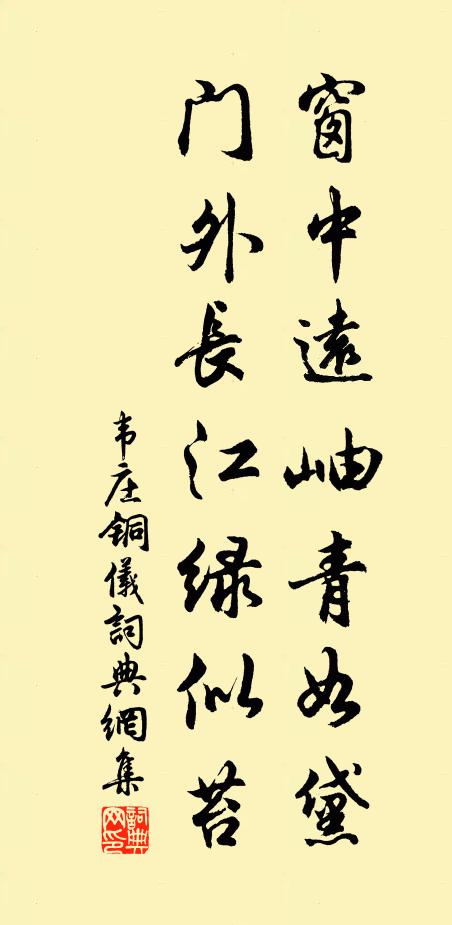 窗中遠岫青如黛
门外長江绿似苔
韦庄銅儀詞典網集
詞典网印